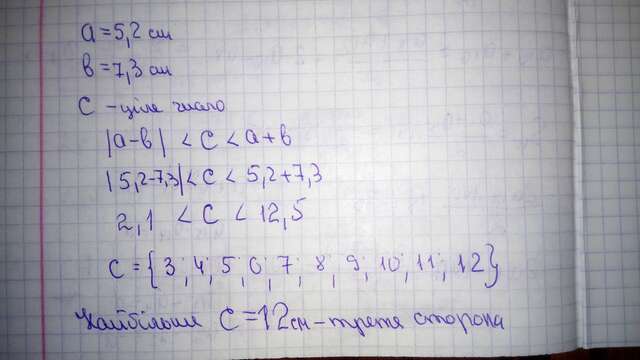 a = 5,2 см
b = 7,3 см
c - ціле число
|a-b| < c < a+b
|5,2-7,3| < c < 5,2+7,3
2,1 < c < 12,5
c = {3; 4; 5; 6; 7; 8; 9; 10; 11; 12}
Найбільше c = 12 см - третя сторона